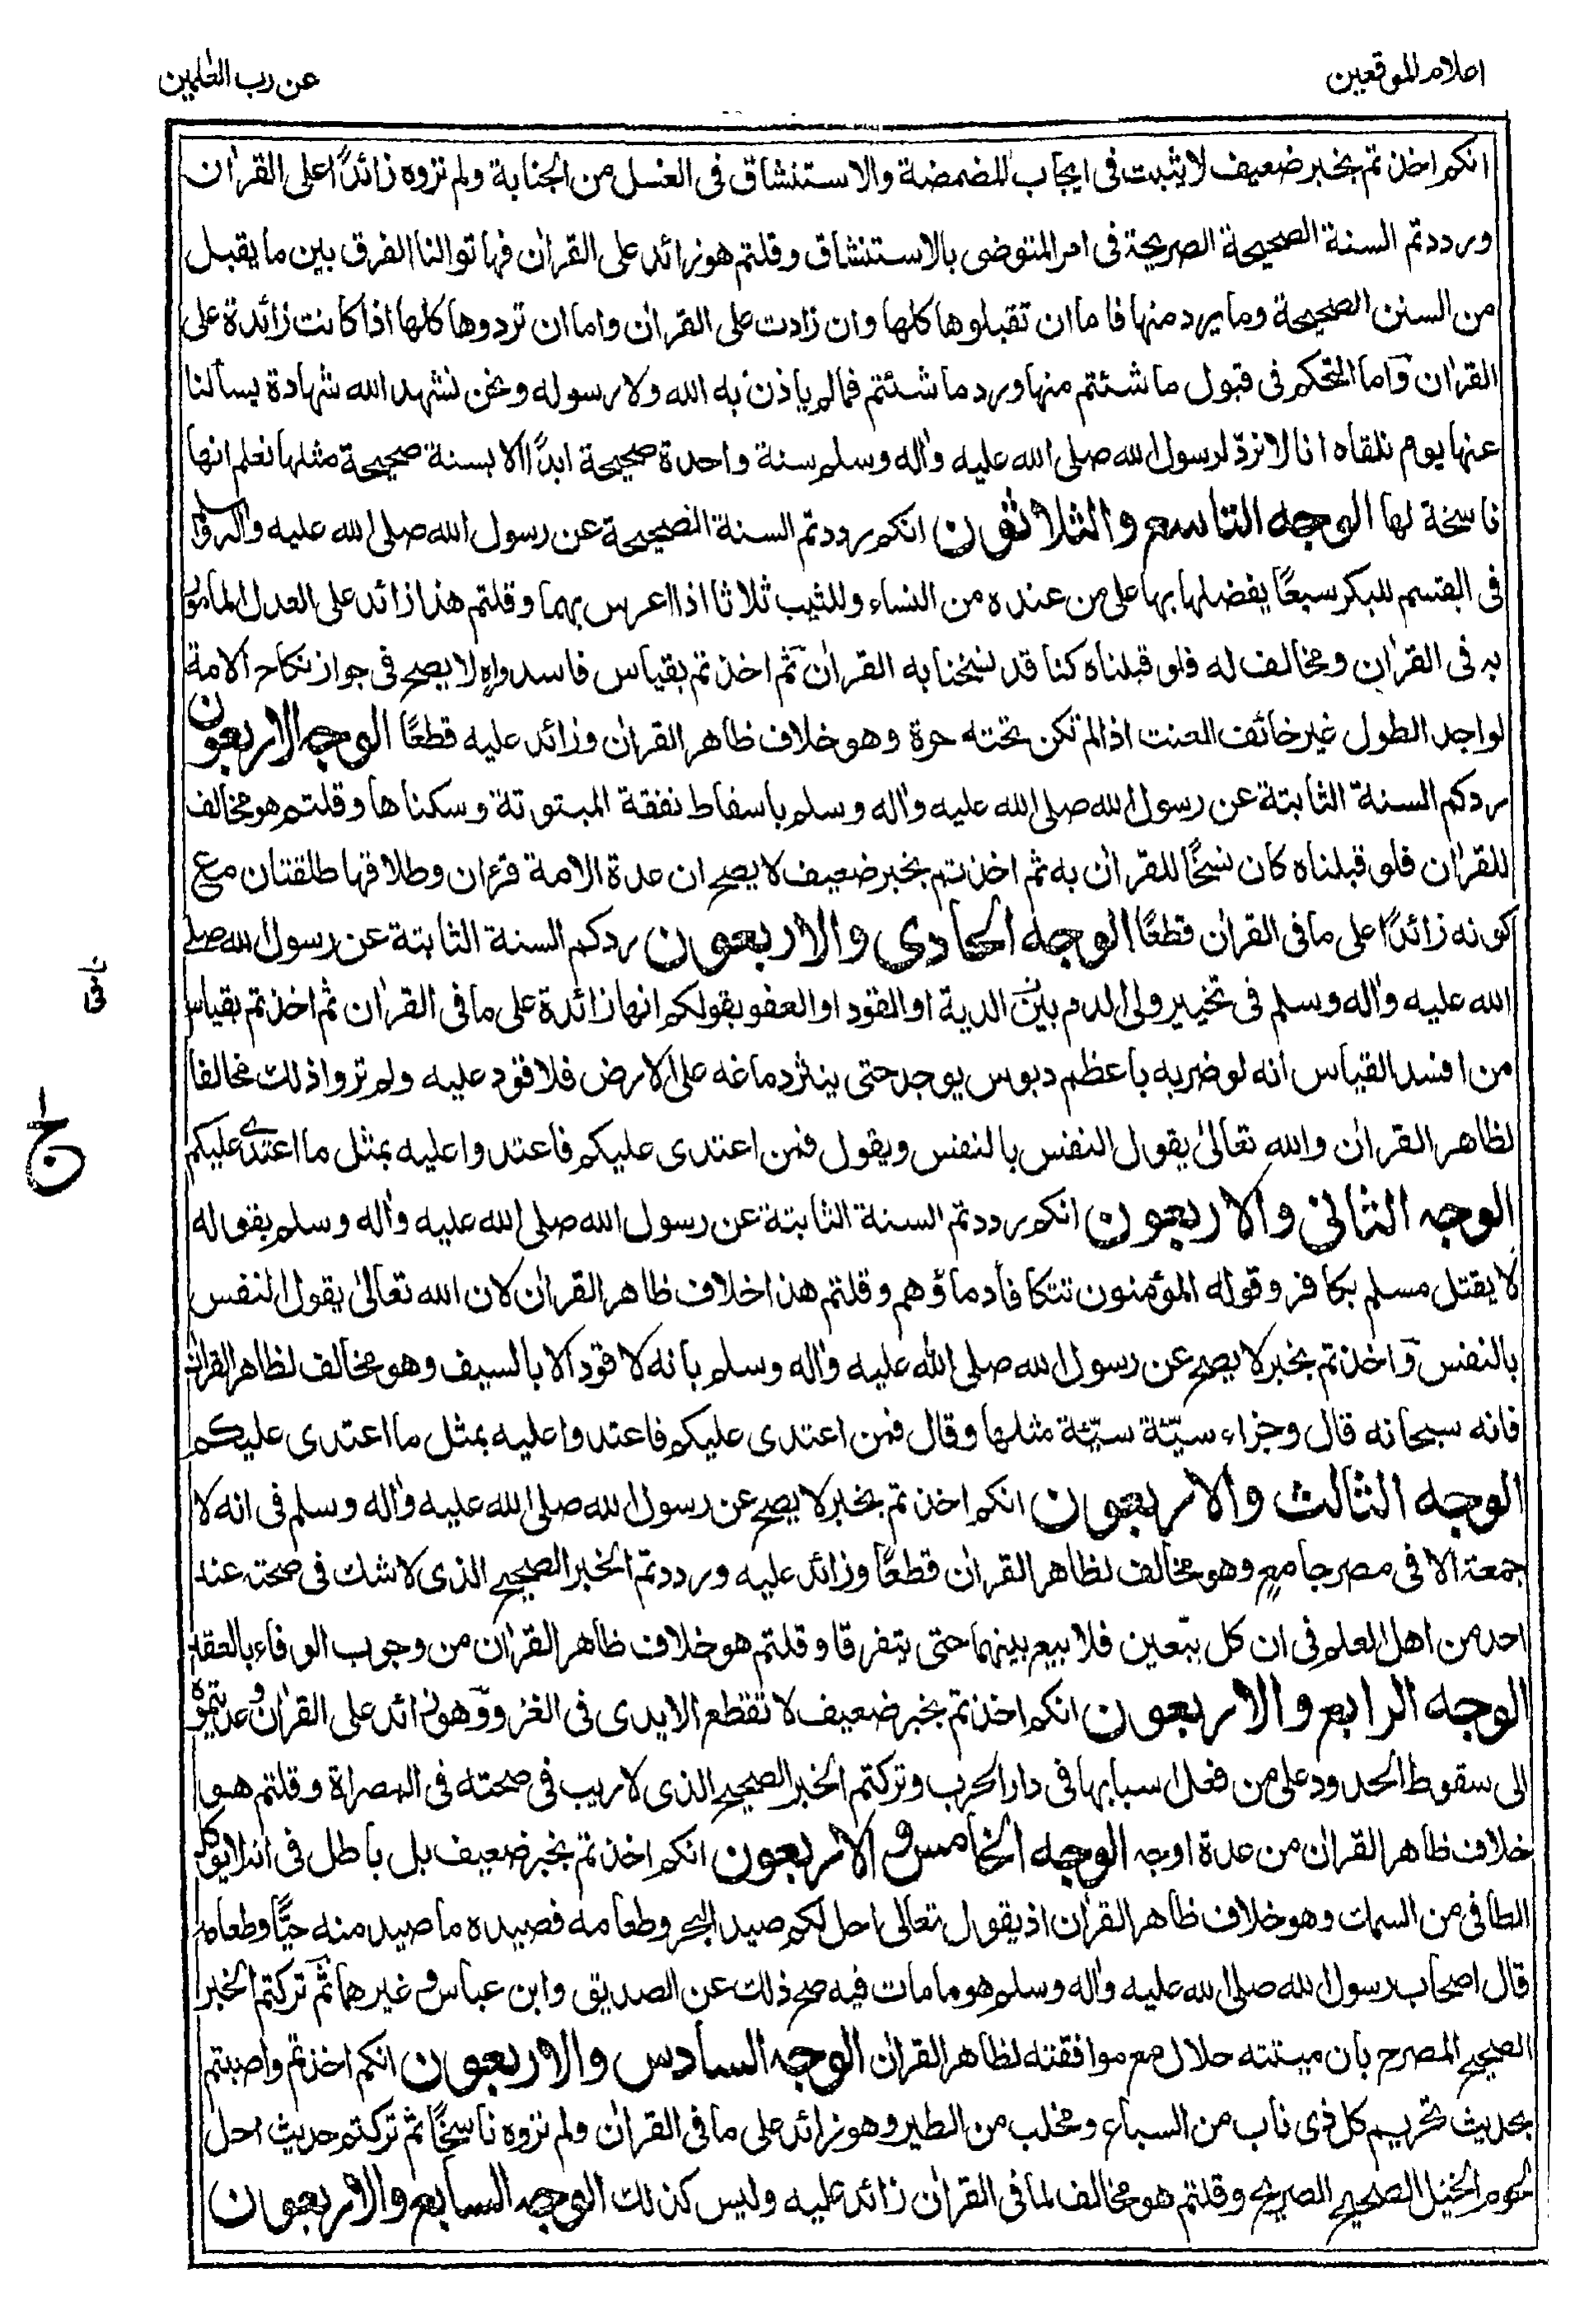 اعلام الموقعين
عن رب العٰلمين
انكم اخذتم بخبر ضعيف لا يثبت فى ايجاب المضمضة والاستنشاق فى الغسل من الجنابة ولم تروه زائدًا على القرآن
ورددتم السنة الصحيحة الصريحة فى امر المتوضى بالاستنشاق وقلتم هو زائد على القرآن فهاتوا لنا الفرق بين ما يقبل
من السنن الصحيحة وما يرد منها فاما ان تقبلوها كلها وان زادت على القرآن واما ان تردوها كلها اذا كانت زائدة على
القرآن واما التحكم فى قبول ما شئتم منها ورد ما شئتم فمالم ياذن به الله ولا رسوله ونحن نشهد الله شهادة يسألنا
عنها يوم نلقاه انا لا نردّ لرسول الله صلى الله عليه واٰله وسلم سنة واحدة صحيحة ابدًا الا بسنة صحيحة مثلها نعلم انها
ناسخة لها الوجه التاسع والثلاثون انكم رددتم السنة الصحيحة عن رسول الله صلى الله عليه واٰله وسلم
فى القسم للبكر سبعًا يفضلها بها على من عنده من النساء وللثيب ثلاثا اذا اعرس بهما وقلتم هذا زائد على العدل المامور
به فى القرآن ومخالف له فلو قبلناه كنا قد نسخنا به القرآن ثم اخذتم بقياس فاسد واهٍ لا يصح فى جواز نكاح الامة
لواجد الطول غير خائف العنت اذا لم تكن تحته حرة وهو خلاف ظاهر القرآن وزائد عليه قطعًا الوجه الاربعون
ردكم السنة الثابتة عن رسول الله صلى الله عليه واٰله وسلم باسقاط نفقة المبتوتة وسكناها وقلتم هو مخالف
للقرآن فلو قبلناه كان نسخًا للقرآن به ثم اخذتم بخبر ضعيف لا يصح ان عدة الامة قرءان وطلاقها طلقتان مع
كونه زائدًا على ما فى القرآن قطعًا الوجه الحادى والاربعون ردكم السنة الثابتة عن رسول الله صلى
الله عليه واٰله وسلم فى تخيير ولى الدم بين الدية او القود او العفو بقولكم انها زائدة على ما فى القرآن ثم اخذتم بقياس
من افسد القياس انه لو ضربه باعظم دبوس يوجد حتى ينثر دماغه على الارض فلا قود عليه ولم تروا ذلك مخالفا
لظاهر القرآن والله تعالىٰ يقول النفس بالنفس ويقول فمن اعتدى عليكم فاعتدوا عليه بمثل ما اعتدى عليكم
الوجه الثانى والاربعون انكم رددتم السنة الثابتة عن رسول الله صلى الله عليه واٰله وسلم بقوله
لا يقتل مسلم بكافر وقوله المؤمنون تتكافأ دماؤهم وقلتم هذا خلاف ظاهر القرآن لان الله تعالىٰ يقول النفس
بالنفس واخذتم بخبر لا يصح عن رسول الله صلى الله عليه واٰله وسلم بانه لا قود الا بالسيف وهو مخالف لظاهر القرآن
فانه سبحانه قال وجزاء سيّئة سيّئة مثلها وقال فمن اعتدى عليكم فاعتدوا عليه بمثل ما اعتدى عليكم
الوجه الثالث والاربعون انكم اخذتم بخبر لا يصح عن رسول الله صلى الله عليه واٰله وسلم فى انه لا
جمعة الا فى مصر جامع وهو مخالف لظاهر القرآن قطعًا وزائد عليه ورددتم الخبر الصحيح الذى لا شك فى صحته عند
احد من اهل العلم فى ان كل بيّعين فلا بيع بينهما حتى يتفرقا وقلتم هو خلاف ظاهر القرآن من وجوب الوفاء بالعقد
الوجه الرابع والاربعون انكم اخذتم بخبر ضعيف لا تقطع الايدى فى الغزو وهو زائد على القرآن وعديتموه
الى سقوط الحدود على من فعل اسبابها فى دار الحرب وتركتم الخبر الصحيح الذى لا ريب فى صحته فى المصراة وقلتم هو
خلاف ظاهر القرآن من عدة اوجه الوجه الخامس والاربعون انكم اخذتم بخبر ضعيف بل باطل فى انه لا يؤكل
الطافى من السمك وهو خلاف ظاهر القرآن اذ يقول تعالى احل لكم صيد البحر وطعامه فصيده ما صيد منه حيًّا وطعامه
قال اصحاب رسول الله صلى الله عليه واٰله وسلم هو مامات فيه صح ذلك عن الصديق وابن عباس وغيرهما ثم تركتم الخبر
الصحيح المصرح بان ميتته حلال مع موافقته لظاهر القرآن الوجه السادس والاربعون انكم اخذتم واصبتم
بحديث تحريم كل ذى ناب من السباع ومخلب من الطير وهو زائد على ما فى القرآن ولم تروه ناسخًا ثم تركتم حديث احل
لحوم الخيل الصحيح الصريح وقلتم هو مخالف لما فى القرآن زائد عليه وليس كذلك الوجه السابع والاربعون
ج